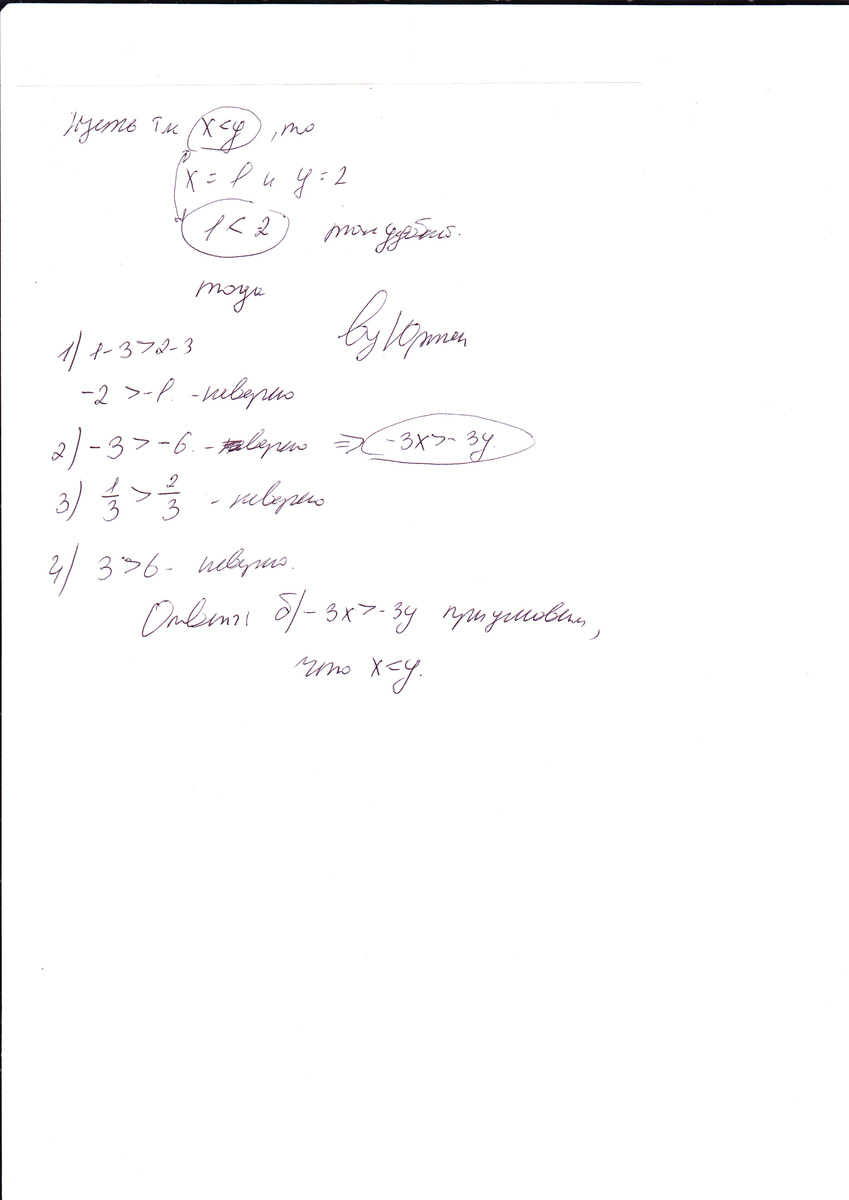 Пусть тк x<y, то
x = 1 и y = 2
1 < 2 так удобно.
тогда
1) 1-3>2-3
by Юртен
-2 > -1. - неверно
2) -3 > -6. - верно => -3x>-3y.
3) 1/3 > 2/3 - неверно
4) 3>6 - неверно.
Ответ: б) -3x>-3y при условии,
что x<y.